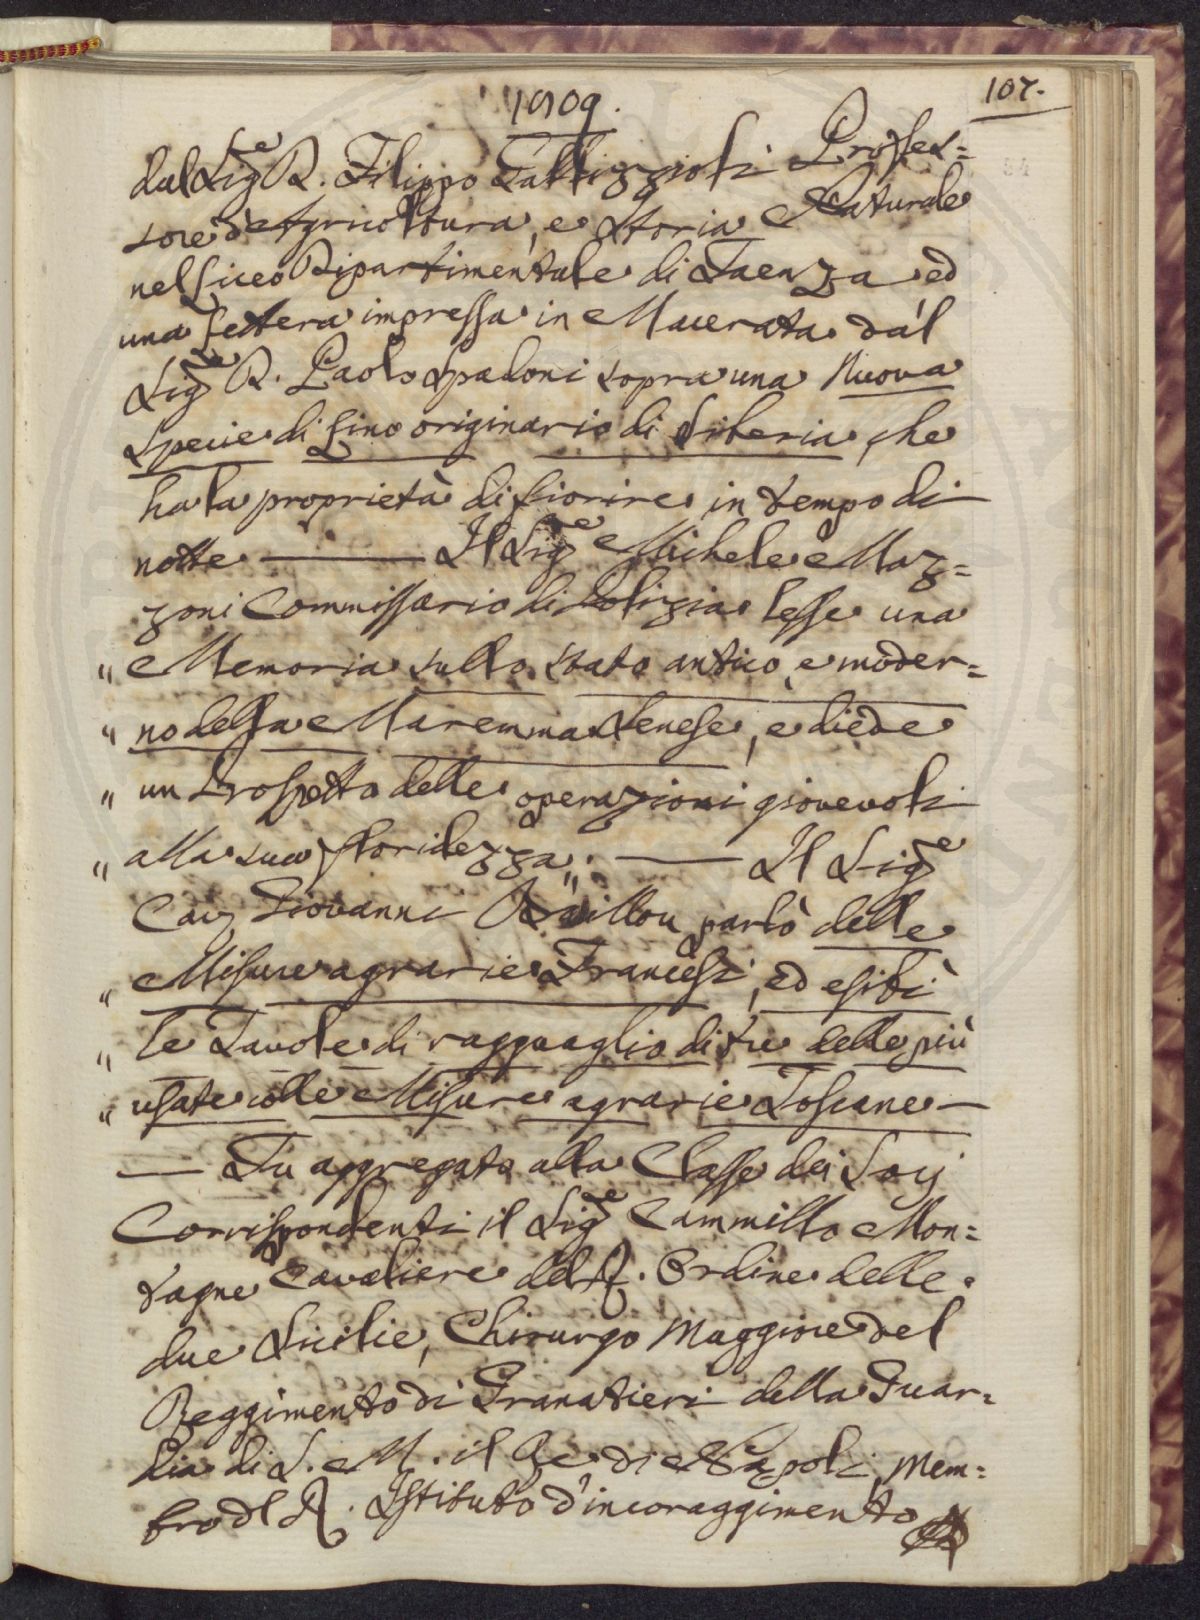 1809.
107.
dal Sig.e D. Filippo Tattizzioli Profes=
sore d'Agricoltura, e Storia Naturale
nel Liceo Dipartimentale di Faenza ed
una Lettera impressa in Macerata dal
Sig.e D. Paolo Spadoni sopra una Nuova
Specie di Lino originario di Siberia che
ha la proprietà di fiorire in tempo di
notte ——— Il Sig.e Michele Maz=
zoni Commissario di Polizia lesse una
" Memoria sullo stato antico, e moder=
" no della Maremma Senese, e diede
" un Prospetto delle operazioni giovevoli
" alla sua floridezza„. —— Il Sig.e
Cav. Giovanni Baillou parlò delle
" Misure agrarie Francesi, ed esibì
" le Tavole di ragguaglio di tre delle più
" usate colle Misure agrarie Toscane —
— Fu aggregato alla Classe dei Socj
Corrispondenti il Sig.e Cammillo Mon=
tagne Cavaliere del R. Ordine delle
due Sicilie, Chirurgo Maggiore del
Reggimento di Granatieri della Guar=
dia di S. M. il Re di Napoli, Mem=
bro dl R. Istituto d'incoraggimento